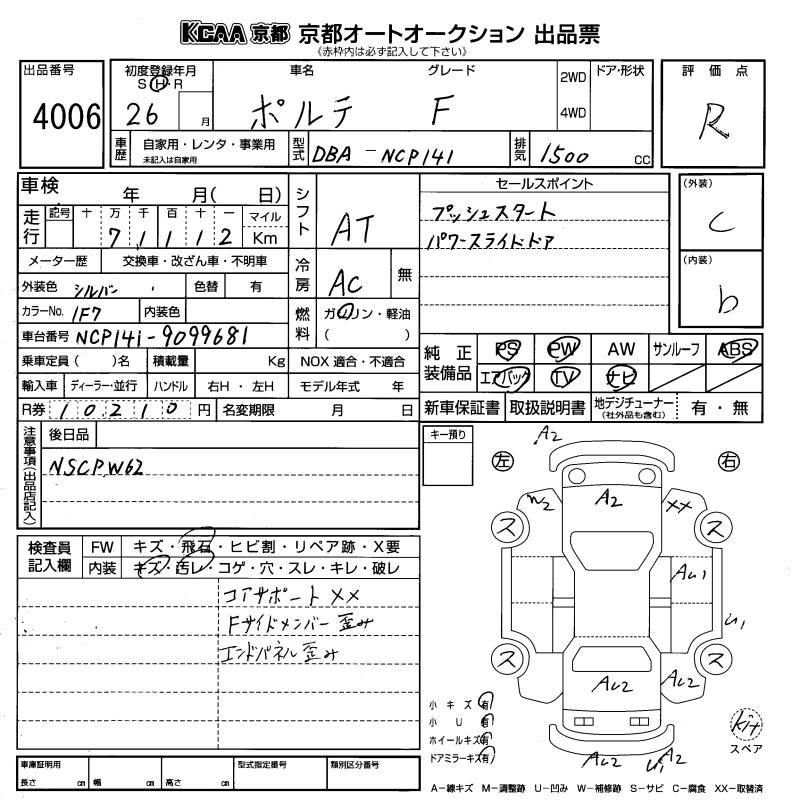 KCAA 京都 京都オートオークション 出品票
《赤枠内は必ず記入して下さい》
出品番号 4006
初度登録年月 S・H・R 26 月
車名 ポルテ
グレード F
2WD 4WD
ドア・形状
評価点 R
車歴 自家用・レンタ・事業用 未記入は自家用
型式 DBA-NCP141
排気 1500 CC
車検 年 月( 日)
シフト AT
セールスポイント
プッシュスタート
パワースライドドア
(外装) C
(内装) b
走行 記号 十 万 千 百 十 一 マイル Km
7 1 1 1 2
メーター歴 交換車・改ざん車・不明車
冷房 AC 無
外装色 シルバー 色替 有
カラーNo. 1F7 内装色
燃料 ガソリン・軽油 ( )
車台番号 NCP141-9099681
乗車定員 ( )名 積載量 Kg NOX 適合・不適合
純正装備品 PS PW AW サンルーフ ABS
エアバック TV ナビ
輸入車 ディーラー・並行 ハンドル 右H・左H モデル年式 年
R券 10210 円 名変期限 月 日
新車保証書 取扱説明書 地デジチューナー (社外品も含む) 有・無
注意事項(出品店記入)
後日品
NSCP.W62
キー預り
左 右
A2
A2
W2 XX
ス ス
AU1
U1
ス ス
AU2 AU2
AU2 U1 A2
検査員記入欄
FW キズ・飛石・ヒビ割・リペア跡・X要
内装 キズ・汚レ・コゲ・穴・スレ・キレ・破レ
コアサポート XX
Fサイドメンバー 歪み
エンドパネル 歪み
小キズ 有
小U 有
ホイールキズ 有
ドアミラーキズ 有
kit
スペア
車庫証明用 長さ cm 幅 cm 高さ cm
型式指定番号
類別区分番号
A-線キズ M-調整跡 U-凹み W-補修跡 S-サビ C-腐食 XX-取替済